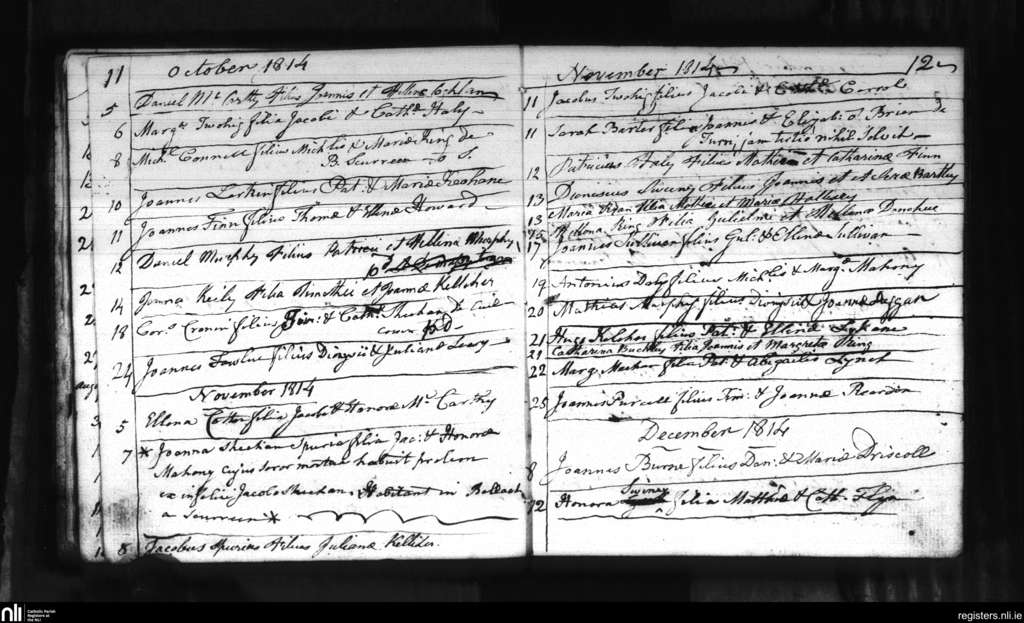 11 October 1814
5 Daniel Mc Cratty filius Joannis et
6 Margt Twohig filia Jacobi & Cathn Haly
8 Michl Connell filius Michlis & Mariæ King de
B. Scurreen
10 Joannes Larkin filius Pat: & Mariæ Keohane
11 Joannes Finn filius Thomæ & Ellenæ Howard
12 Daniel Murphy filius Patricii et Hellena Murphy
14 Joanna Keily filia Timothii et Joannæ Kelliher
18 Cors Cronin filius Jon: & Cathn Meehan de
24 Joannes Fowlue filius Dionysii & Julianæ Leary
November 1814
5 Ellena Cotter filia Jacobi & Honoræ Mc Carthy
7 * Joanna Sheehan Spuria filia Jac: & Honoræ
Mahony cujus soror mortua habuit prolem
ex infelici Jacobo Sheehan. Habitant in Ballach
a Scurreen *
8 Jacobus Spurius filius Julianæ Kelliher.
November 1814 12
11 Jacobus Twohig filius Jacobi & Corrol
11 Sarah Barter filia Joannis & Elizabi: O Brien de
jam tertio nihil Solvit
12 Patricius Healy filius Mathiæ et Catharinæ Finn
13 Dionisius Sweeny filius Joannis et Bartley
13 Maria Regan filia Mathiæ et Mariæ
15 Hellena Ring filia Gulielmi et Donohue
17 Joannes Sullivan filius Gul: & Ellenæ Sullivan
19 Antonius Daly filius Michlis & Margt Mahony
20 Mathias Murphy filius Dionysii & Joannæ Duggan
21 Hugo Kelcher filius Pat: & Ellenæ Lyhane
21 Catharina Buckley filia Joannis et Margreta Ring
22 Margt Meehan filia Pat & Abigaelis Lynch
25 Joannes Purcell filius Tim: & Joannæ Reardon
December 1814
8 Joannes Burne filius Dan: & Mariæ Driscoll
12 Honora Swiney filia Matthiæ & Cath: Flyn
nli
Catholic Parish
Registers at
the NLI
registers.nli.ie